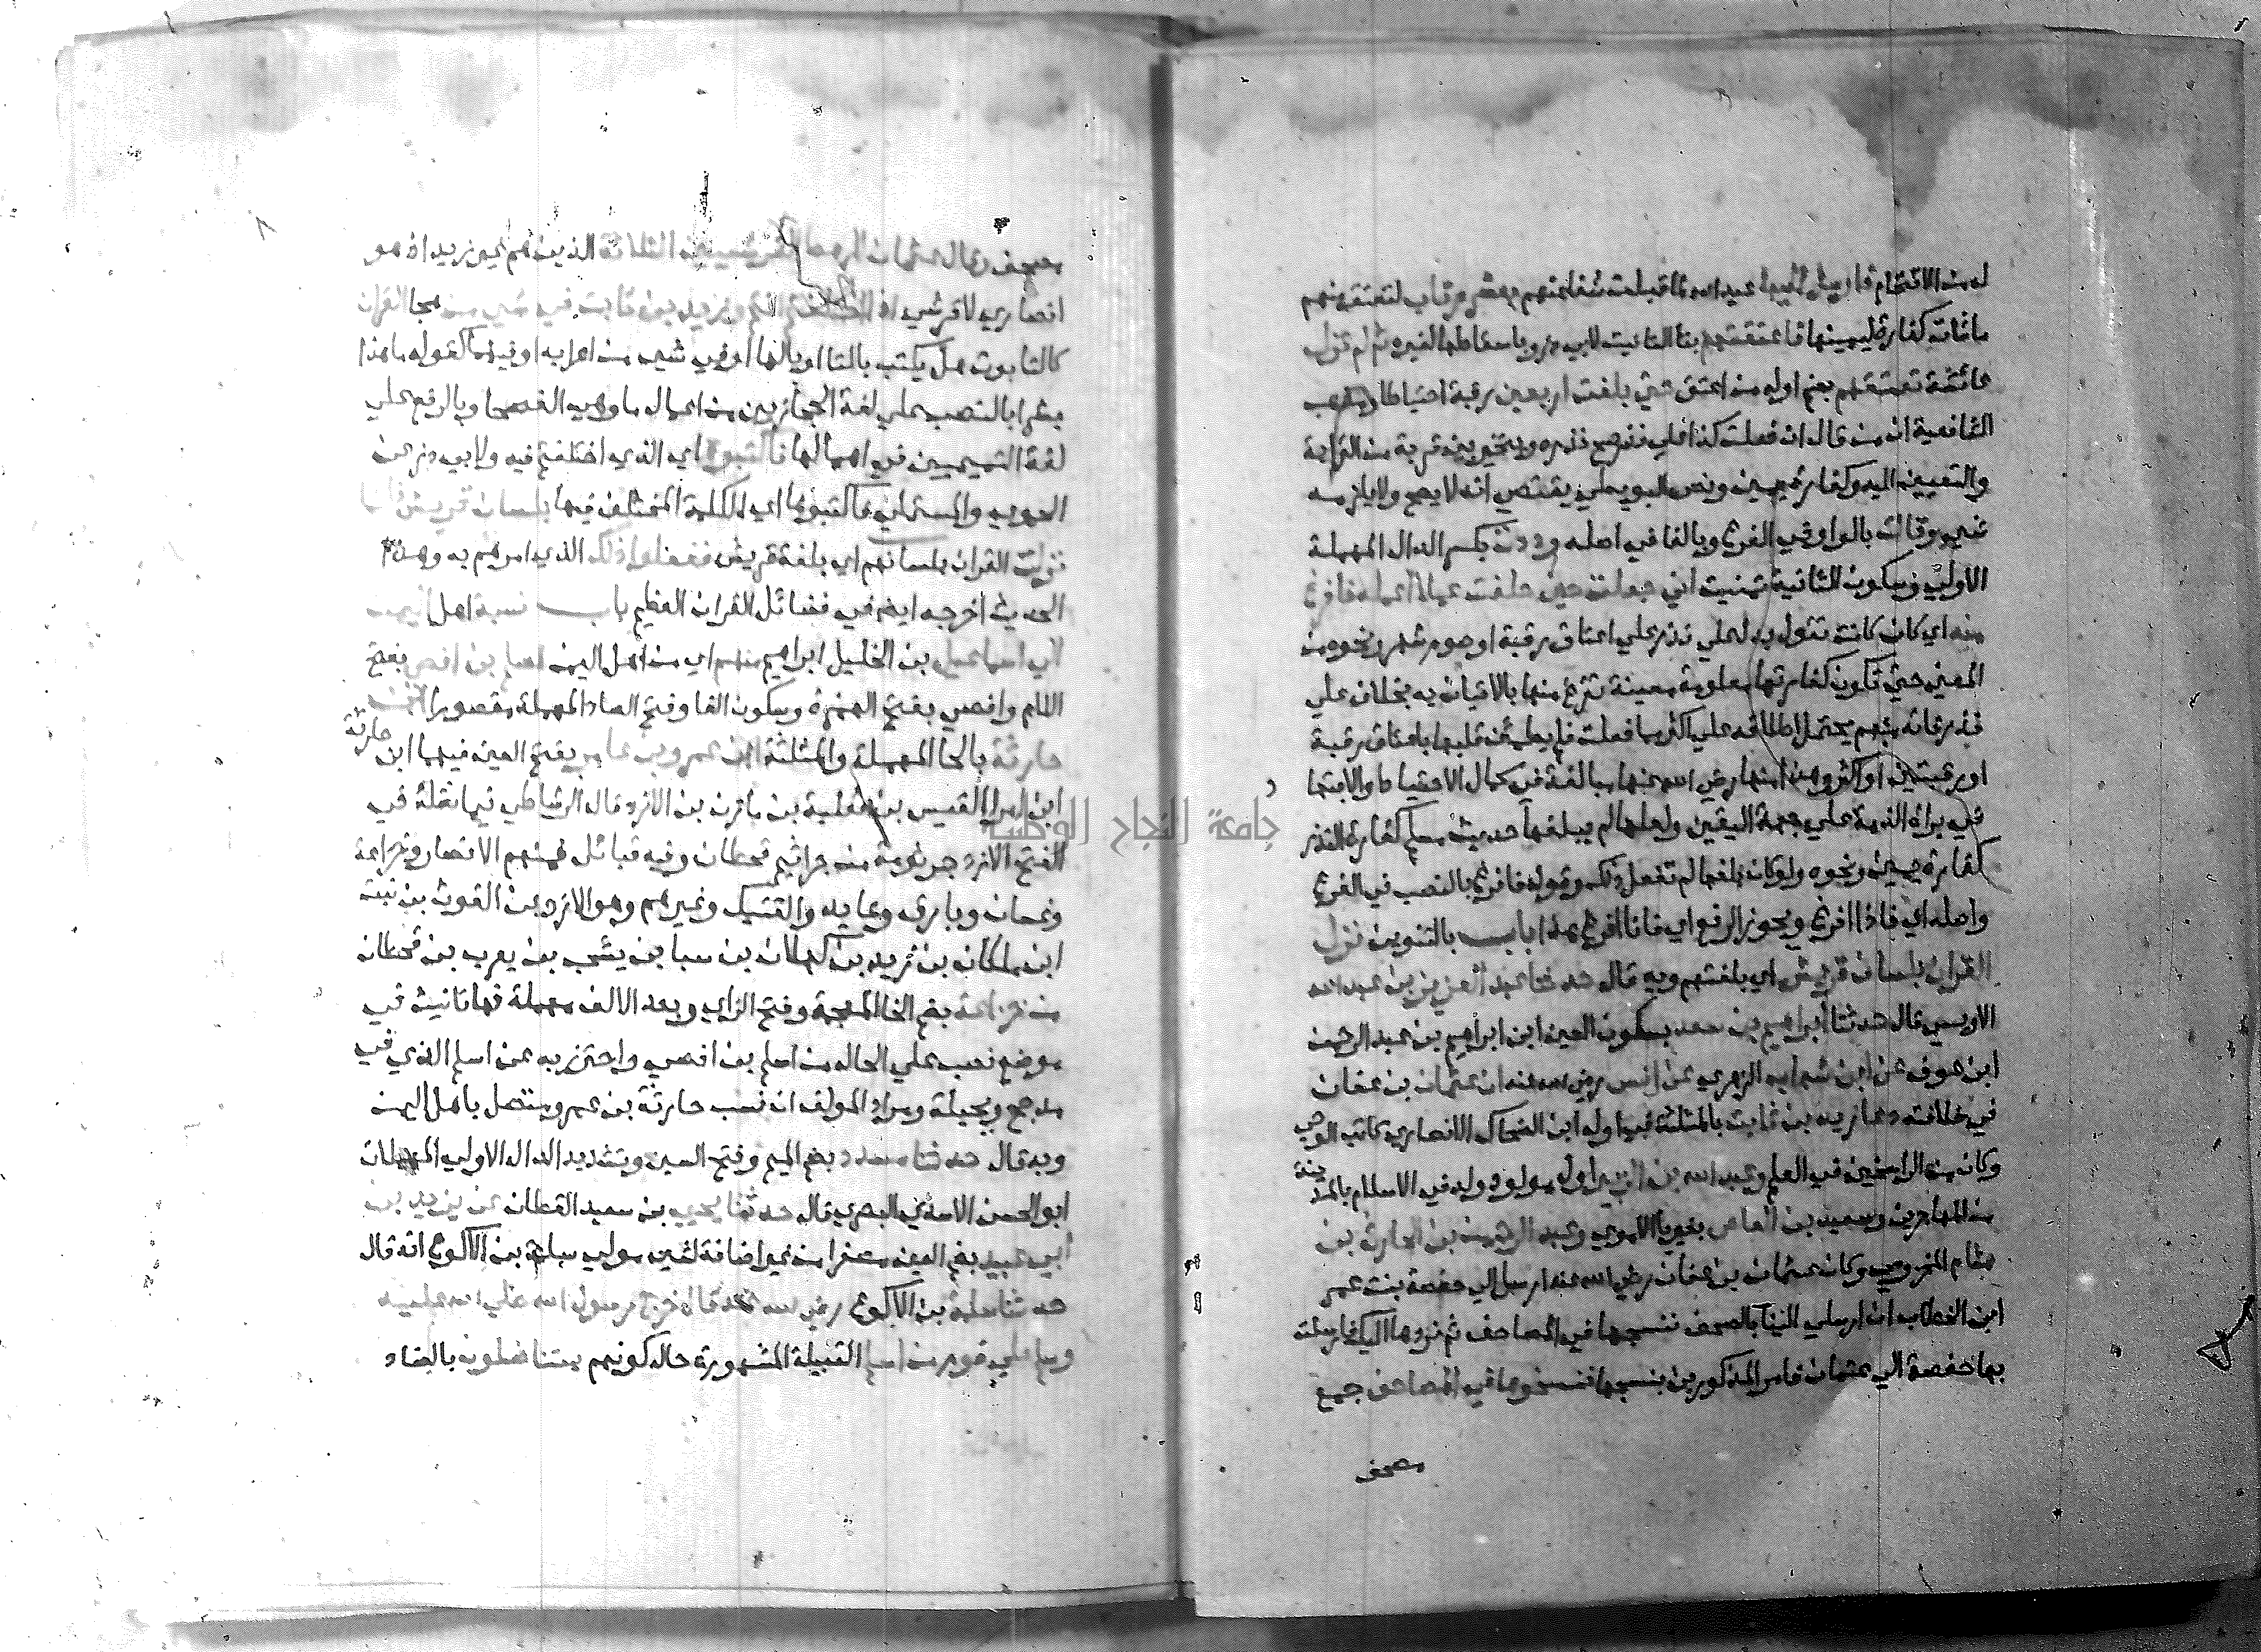 له من الاقتحام فارسل اليها عبد الله لما قبلت شفاعتهم بعشر رقاب لتعتق منهم
ما شات كفارة ليمينها فاعتقتهم بتا التانيث لابي ذر وباسقاطها لغيره ثم لم تزل
عائشة تعتقهم بضم اوله من اعتق حتي بلغت اربعين رقبة احتياطا ومذهب
الشافعية ان من قال ان فعلت كذا فلله علي نذر صح نذره ويتخير بين قربة من القرب
والتعيين اليه وكفارة يمين ونص البويطي يقتضي انه لا يصح ولا يلزمه
شي وقالت بالواو في الفرع وبالفا في اصله وددت بكسر الدال المهملة
الاولي وسكون الثانية تمنيت اني جعلت حين حلفت عملا اعمله فافرغ
منه اي كان كانت تقول بدل علي نذر علي اعتاق رقبة او صوم شهر ونحوه من
المعين حتي تكون كفارتها معلومة معينة تفرغ منها بالاتيان به بخلاف علي
نذر فانه مبهم يحتمل اطلاقه علي اكثر مما فعلت فلم يطمئن قلبها باعتاق رقبة
او رقبتين او اكثر وهذا منها رضي الله عنها مبالغة في كمال الاحتياط والاجتها
في براة الذمة علي جهة اليقين ولعلها لم يبلغها حديث مسلم كفارة النذر
كفارة يمين ونحوه ولو كان بلغها لم تفعل ذلك وقوله فافرغ بالنصب في الفرع
واصله اي فاذا افرغ ويجوز الرفع اي فانا افرغ هذا باب بالتنوين نزل
القران بلسان قريش اي بلغتهم وبه قال حدثنا عبد العزيز بن عبد الله
الاويسي قال حدثنا ابراهيم بن سعد بسكون العين ابن ابراهيم بن عبد الرحمن
ابن عوف عن ابن شهاب الزهري عن انس رضي الله عنه ان عثمان بن عفان
في خلافته دعا زيد بن ثابت بالمثلثة في اوله ابن الضحاك الانصاري كاتب الوحي
وكان من الراسخين في العلم وعبد الله بن الزبير اول مولود ولد في الاسلام بالمدينة
من المهاجرين وسعيد بن العاص بغير يا الاموي وعبد الرحمن بن الحارث بن
هشام المخزومي وكان عثمان بن عفان رضي الله عنه ارسل الي حفصة بنت عمر
ابن الخطاب ان ارسلي الينا بالصحف ننسخها في المصاحف ثم نردها اليك فارسلت
بها حفصة الي عثمان فامر المذكورين بنسخها فنسخوها في المصاحف جمع
مصحف
٨
مصحف وقال عثمان الرهط القرشيين الثلاثة الذين هم غير زيد اذ هو
انصاري لا قرشي اذا اختلفتم انتم وزيد بن ثابت في شي من هجا القران
كالتابوت هل يكتب بالتا او بالها او في شي من اعرابه او فيهما كقوله ما هذا
بشرا بالنصب علي لغة الحجازيين من اعمال ما وهي الفصحا وبالرفع علي
لغة التميميين في اهمالها فاكتبوه اي الذي اختلفتم فيه ولابي ذر عن
الحموي والمستملي فاكتبوها اي الكلمة المختلف فيها بلسان قريش فانما
نزلت القران بلسانهم اي بلغة قريش ففعلوا ذلك الذي امرهم به وهذا
الحديث اخرجه ايضا في فضائل القران العظيم باب نسبة اهل اليمن
الي اسماعيل بن الخليل ابراهيم منهم اي من اهل اليمن اسلم بن افصي بفتح
اللام وافصي بفتح الهمزة وسكون الفا وفتح الصاد المهملة مقصورا ابن حارثة
حارثة بالحا المهملة والمثلثة ابن عمرو بن عامر بفتح العين فيهما ابن
ابن امرا القيس بن ثعلبة بن مازن بن الازد قال الرشاطي فيما نقله في
الفتح الازد جرثومة من جراثيم قحطان وفيه قبائل فمنهم الانصار وخزاعة
وغسان وبارق وغامد والعتيك وغيرهم وهو الازد بن الغوث بن نبت
ابن ملكان بن زيد بن كهلان بن سبا بن يشجب بن يعرب بن قحطان
من خزاعة بضم الخا المعجمة وفتح الزاي وبعد الالف مهملة فها تانيث في
موضع نصب علي الحال من اسلم بن افصي واحترز به عن اسلم الذي في
مذحج وبجيلة ومراد المولف ان نسب حارثة بن عمرو متصل باهل اليمن
وبه قال حدثنا مسدد بضم الميم وفتح السين وتشديد الدال الاولي المهملات
ابو الحسن الاسدي البصري قال حدثنا يحيي بن سعيد القطان عن يزيد بن
ابي عبيد بضم العين مصغرا من غير اضافة لشي مولي سلمة بن الاكوع انه قال
حدثنا سلمة بن الاكوع رضي الله عنه قال خرج رسول الله صلي الله عليه
وسلم علي قوم من اسلم القبيلة المشهورة حال كونهم يتناضلون بالضاد
جامعة النجاح الوطنية